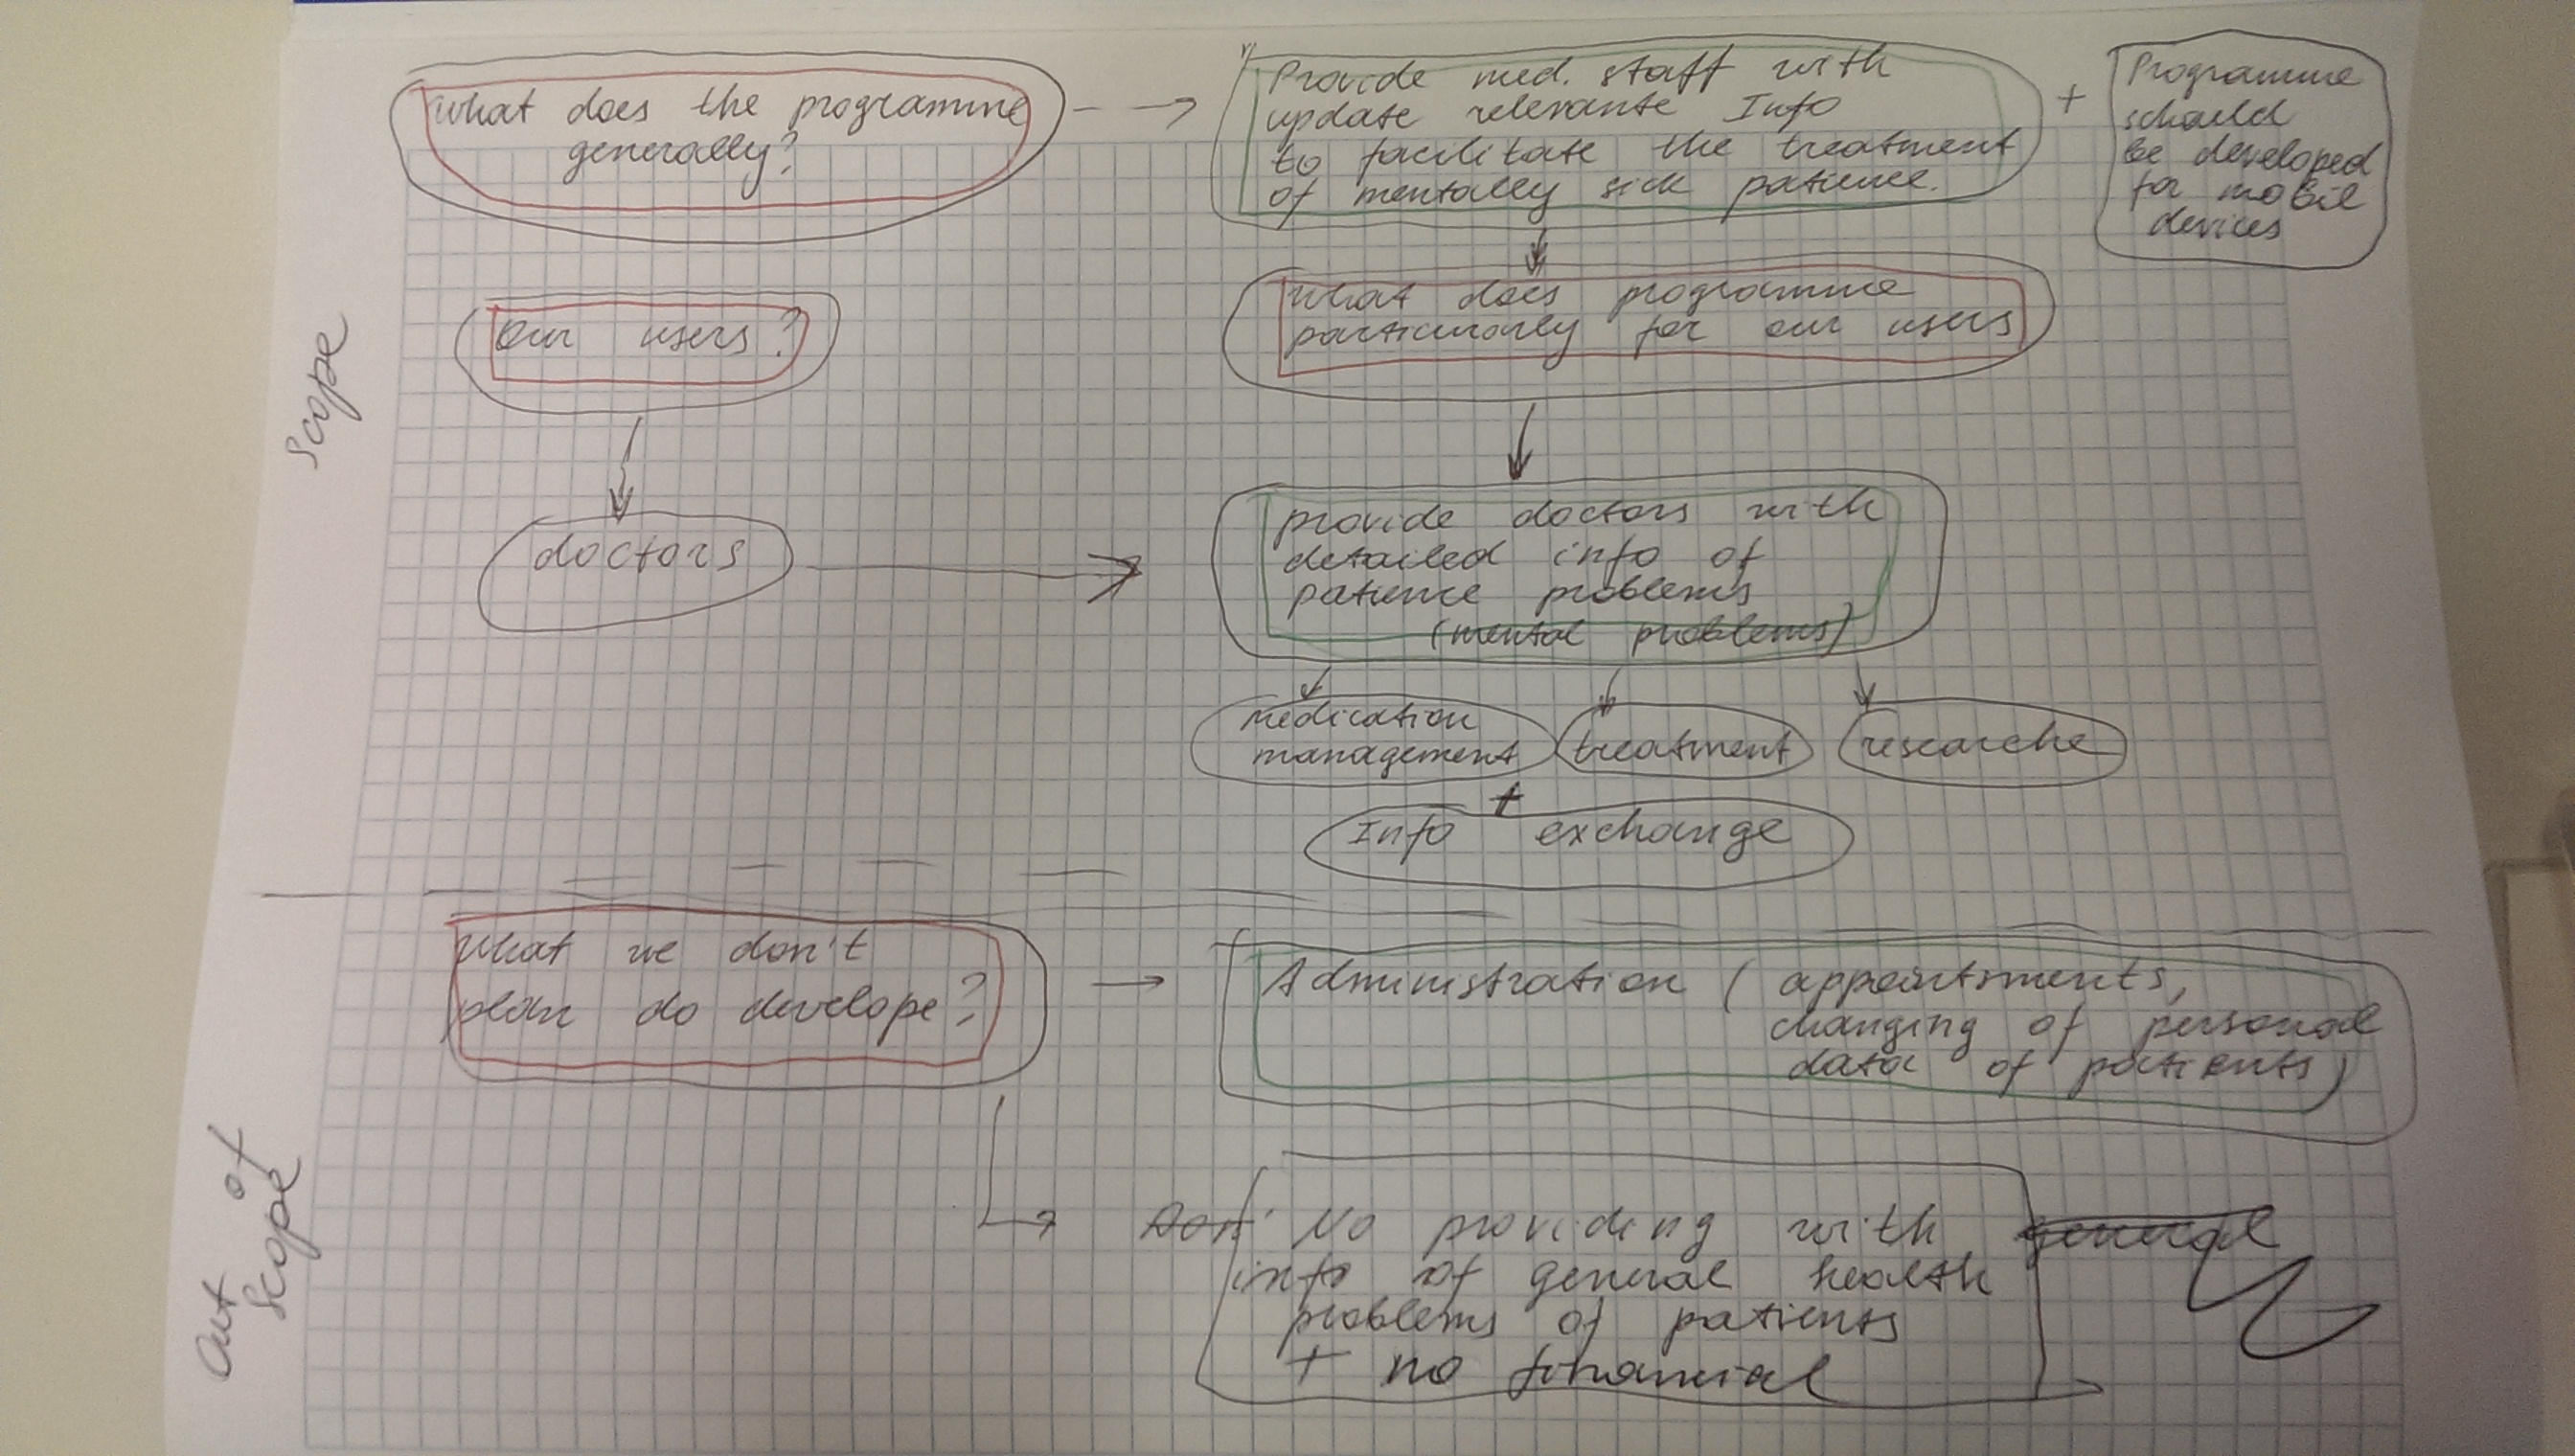 Scope
What does the programme
generally?
Provide med. staff with
update relevante Info
to facilitate the treatment
of mentally sick patience.
+
Programme
schould
be developed
for mobil
devices
Our users?
What does programme
particularly for our users
doctors
provide doctors with
detailed info of
patience problems
(mental problems)
medication
management
treatment
researche
+
Info exchange
Out of
Scope
What we don't
plan do develope?
Administration (appointsments,
changing of personal
data of patients)
Don' No providing with general
info of general health
problems of patients
+ no financial